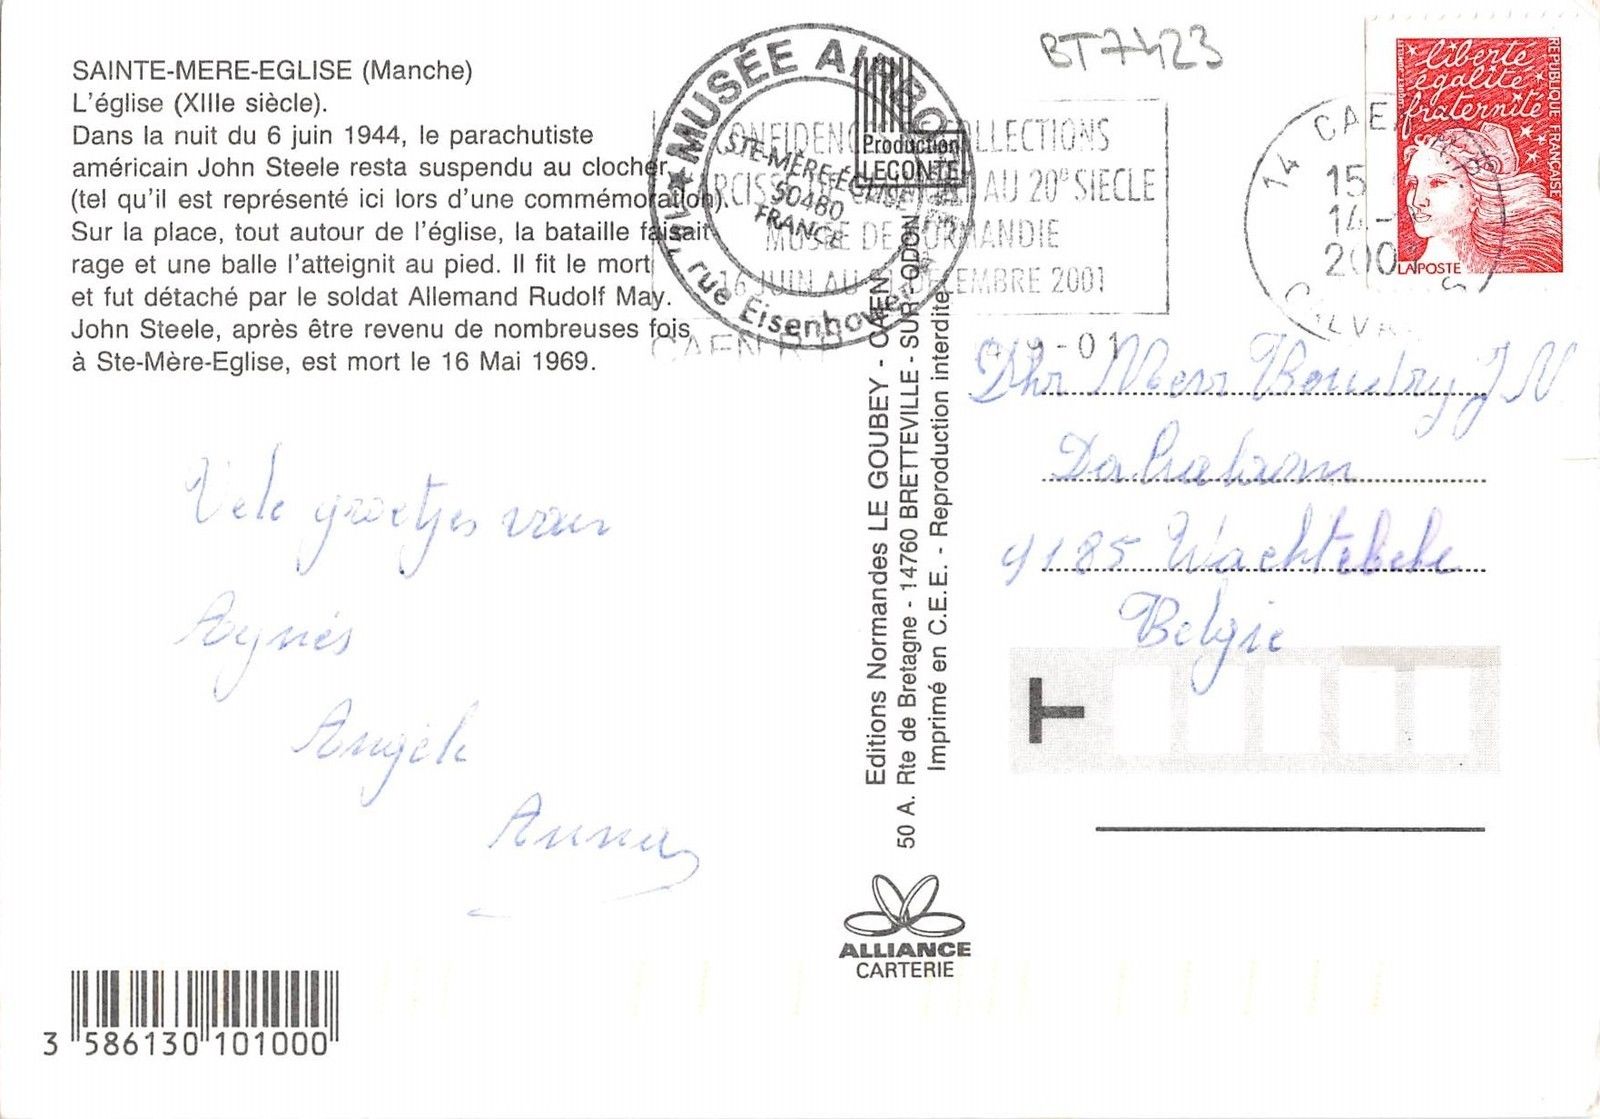 SAINTE-MERE-EGLISE (Manche)
L'église (XIIIe siècle).
Dans la nuit du 6 juin 1944, le parachutiste
américain John Steele resta suspendu au clocher
(tel qu'il est représenté ici lors d'une commémoration).
Sur la place, tout autour de l'église, la bataille faisait
rage et une balle l'atteignit au pied. Il fit le mort
et fut détaché par le soldat Allemand Rudolf May.
John Steele, après être revenu de nombreuses fois
à Ste-Mère-Eglise, est mort le 16 Mai 1969.
Vele groetjes van
Agnés
Angèle
Anna
3 586130 101000
MUSÉE
STE-MÈRE-ÉGLISE
50480
FRANCE
rue Eisenhower
Production
LECONTE
COLLECTIONS
AU 20e SIECLE
MUSÉE DE NORMANDIE
16 JUIN AU 31 DECEMBRE 2001
CAEN
Editions Normandes LE GOUBEY - CAEN
50 A. Rte de Bretagne - 14760 BRETTEVILLE - SUR - ODON
Imprimé en C.E.E. - Reproduction interdite
ALLIANCE
CARTERIE
BT7423
14 CAEN
15
14-
200
CALVA
-9-01
liberté
égalité
fraternité
REPUBLIQUE FRANÇAISE
LA POSTE
Dhr Mevr Boudry J N
9185 Wachtebeke
België
T